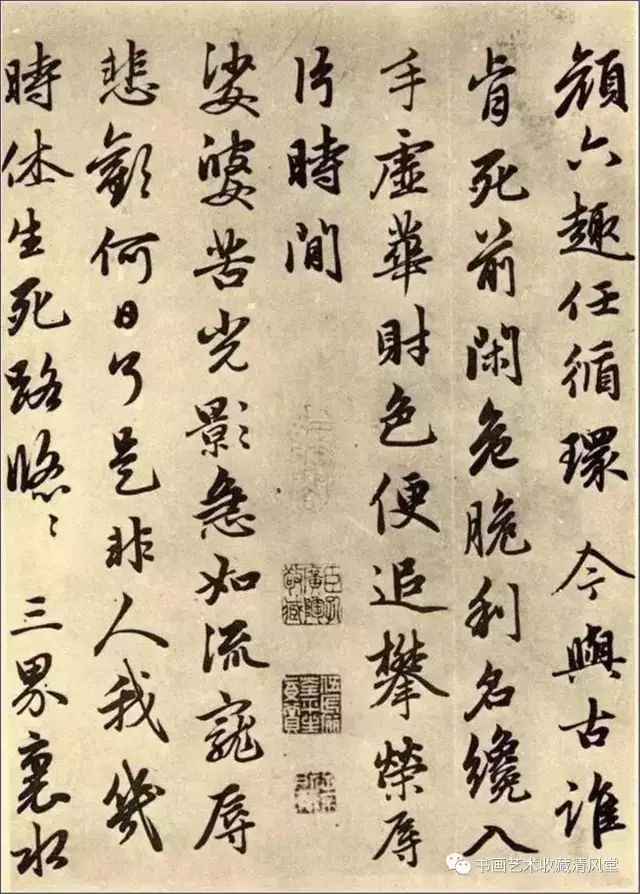 願六趣任循環 今與古誰
肯死前閑危脆利名纔入
手虛華財色便追攀榮辱
片時間
臣孔廣陶敬藏
娑婆苦光影急如流寵辱
悲歡何日了是非人我幾
時休生死路悠〻 三界裏水
书画艺术收藏清风堂